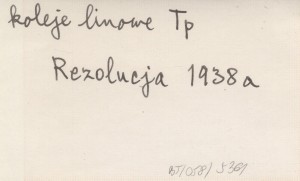 koleje linowe Tp
Rezolucja 1938a
BT/0589/5361